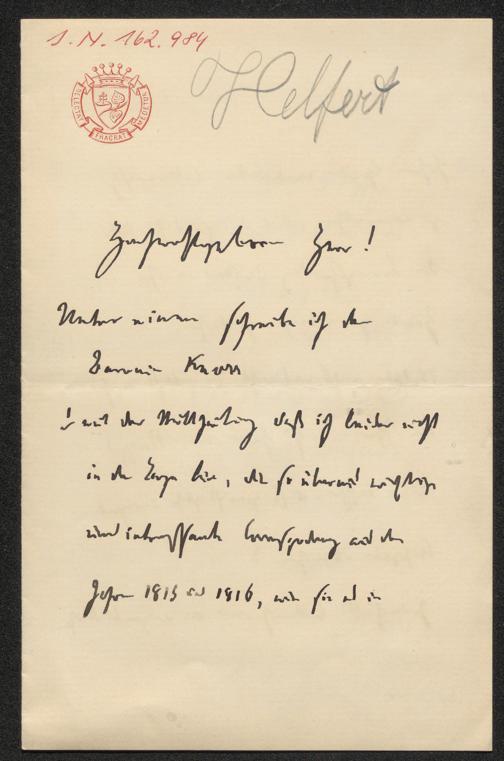 I.N. 162.984
Helfert
DELECTAT THAGRAT MEDETUR
Hochwohlgeborener Herr!
Unter einem schreibe ich der
Baronin Knorr
mit der Mittheilung daß ich leider nicht
in der Lage bin, die so überaus wichtige
und interessante Correspondenz aus den
Jahren 1815 und 1816, wie sie es in